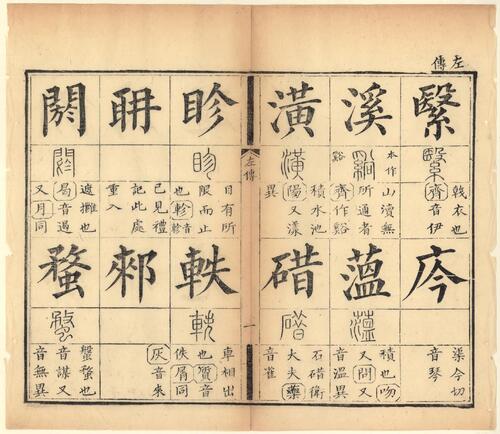 左傳
繄
戟衣也
齊音伊
溪
本作
山瀆無
所通者
齊作谿
潢
積水池
陽又漾
異
庈
渠今切
音琴
薀
積也吻
又問又
音溫異
碏
石碏衛
大夫藥
音雀
左傳
一
眕
目有所
限而止
也軫音軫
耼
已見禮
記此處
重入
閼
遮攤也
曷音遏
又月同
軼
車相出
也質音
佚屑同
郲
灰音來
蝥
盤蝥也
音謀又
音無異